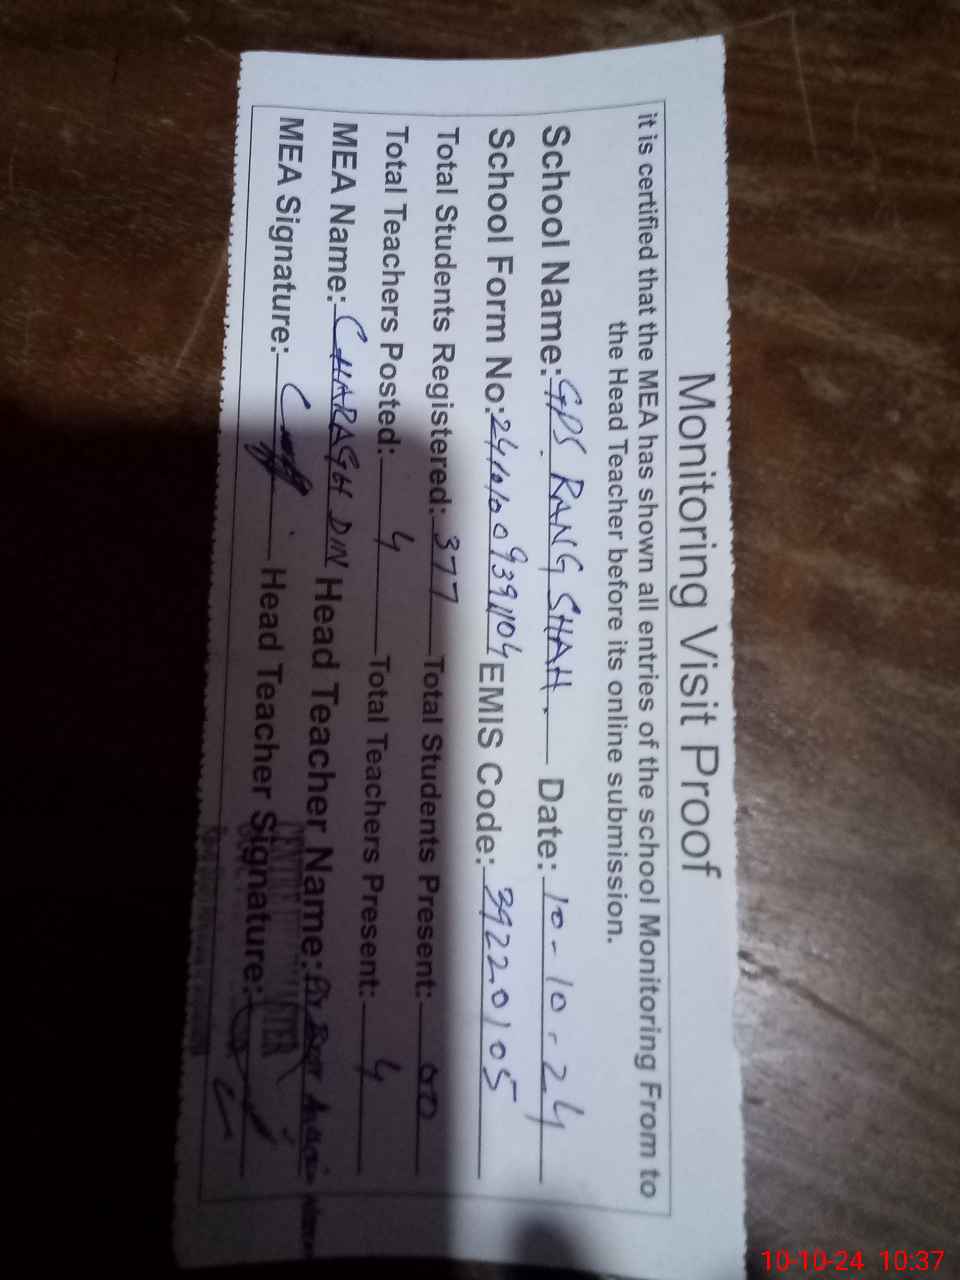 Monitoring Visit Proof
it is certified that the MEA has shown all entries of the school Monitoring From to
the Head Teacher before its online submission.
School Name: GPS RANG SHAH. Date: 10-10-24
School Form No: EMIS Code: 39220105
Total Students Registered: 377 Total Students Present: 00
Total Teachers Posted: 4 Total Teachers Present: 4
MEA Name: CHARAGH DIN Head Teacher Name:
MEA Signature: Head Teacher Signature:
10-10-24 10:37